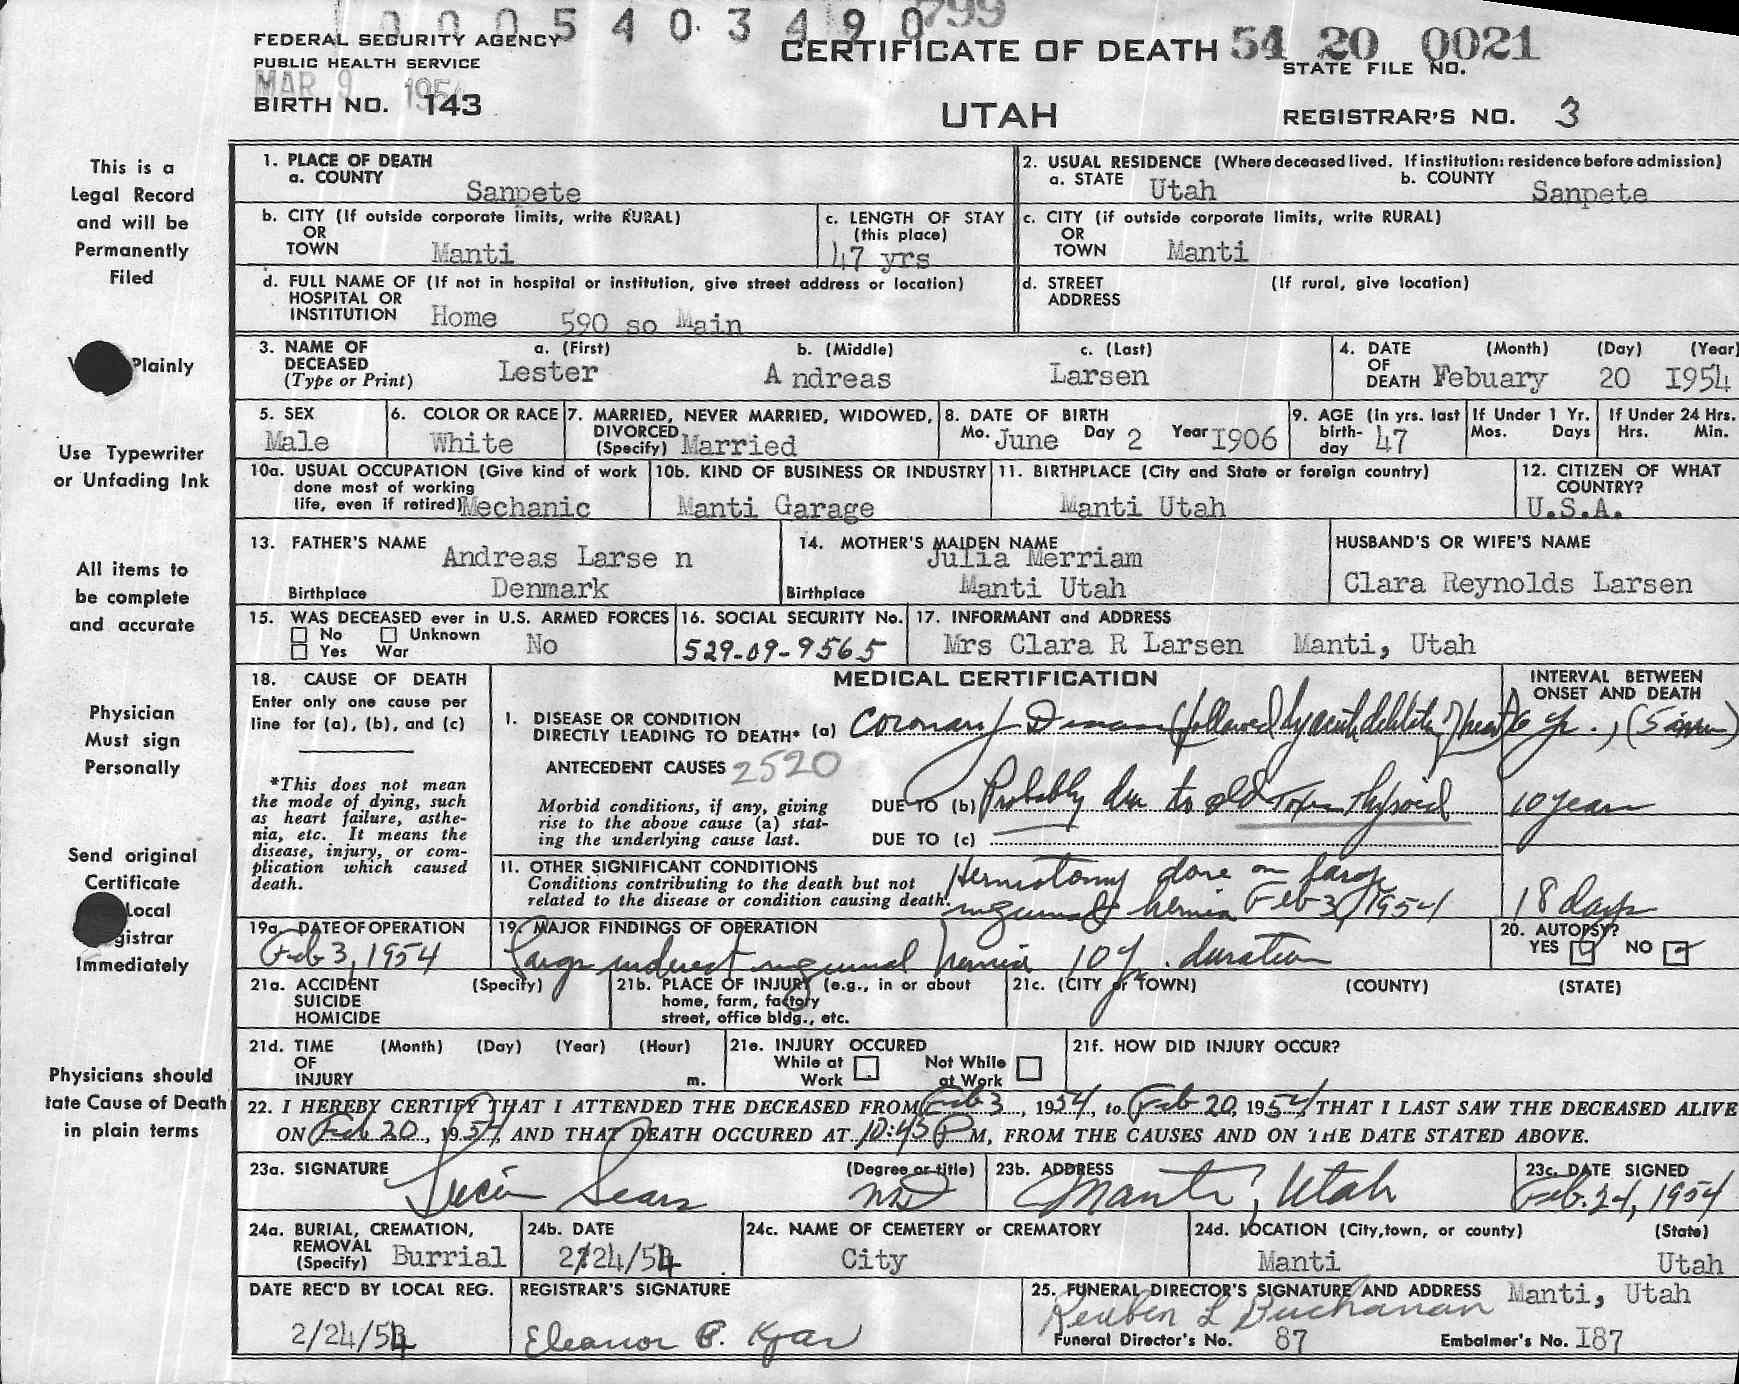 10005403490 799
FEDERAL SECURITY AGENCY
PUBLIC HEALTH SERVICE
MAR 9 1954
BIRTH NO. 143
CERTIFICATE OF DEATH 54 20 0021
STATE FILE NO.
UTAH
REGISTRAR'S NO. 3
This is a
Legal Record
and will be
Permanently
Filed
Plainly
Use Typewriter
or Unfading Ink
All items to
be complete
and accurate
Physician
Must sign
Personally
Send original
Certificate
Local
gistrar
Immediately
Physicians should
tate Cause of Death
in plain terms
1. PLACE OF DEATH
a. COUNTY Sanpete
2. USUAL RESIDENCE (Where deceased lived. If institution: residence before admission)
a. STATE Utah b. COUNTY Sanpete
b. CITY (If outside corporate limits, write RURAL)
OR
TOWN Manti
c. LENGTH OF STAY
(this place)
47 yrs
c. CITY (if outside corporate limits, write RURAL)
OR
TOWN Manti
d. FULL NAME OF (If not in hospital or institution, give street address or location)
HOSPITAL OR
INSTITUTION Home 590 so Main
d. STREET (If rural, give location)
ADDRESS
3. NAME OF a. (First) b. (Middle) c. (Last)
DECEASED
(Type or Print) Lester Andreas Larsen
4. DATE (Month) (Day) (Year)
OF
DEATH Febuary 20 1954
5. SEX
Male
6. COLOR OR RACE
White
7. MARRIED, NEVER MARRIED, WIDOWED,
DIVORCED
(Specify) Married
8. DATE OF BIRTH
Mo. June Day 2 Year I906
9. AGE (in yrs. last
birth-
day 47
If Under 1 Yr.
Mos. Days
If Under 24 Hrs.
Hrs. Min.
10a. USUAL OCCUPATION (Give kind of work
done most of working
life, even if retired) Mechanic
10b. KIND OF BUSINESS OR INDUSTRY
Manti Garage
11. BIRTHPLACE (City and State or foreign country)
Manti Utah
12. CITIZEN OF WHAT
COUNTRY?
U.S.A.
13. FATHER'S NAME Andreas Larse n
Birthplace Denmark
14. MOTHER'S MAIDEN NAME
Julia Merriam
Birthplace Manti Utah
HUSBAND'S OR WIFE'S NAME
Clara Reynolds Larsen
15. WAS DECEASED ever in U.S. ARMED FORCES
No Unknown
Yes War No
16. SOCIAL SECURITY No.
529-09-9565
17. INFORMANT and ADDRESS
Mrs Clara R Larsen Manti, Utah
18. CAUSE OF DEATH
Enter only one cause per
line for (a), (b), and (c)
*This does not mean
the mode of dying, such
as heart failure, asthe-
nia, etc. It means the
disease, injury, or com-
plication which caused
death.
MEDICAL CERTIFICATION
INTERVAL BETWEEN
ONSET AND DEATH
I. DISEASE OR CONDITION
DIRECTLY LEADING TO DEATH* (a) Coronary (followed by acute 6 yr.,
ANTECEDENT CAUSES 2520
Morbid conditions, if any, giving
rise to the above cause (a) stat-
ing the underlying cause last.
DUE TO (b) Probably due to old Toxic Thyroid 10 years
DUE TO (c)
II. OTHER SIGNIFICANT CONDITIONS
Conditions contributing to the death but not
related to the disease or condition causing death.
Herniotomy done on large
inguinal hernia Feb 3, 1954 18 days
19a. DATE OF OPERATION
Feb 3, 1954
19. MAJOR FINDINGS OF OPERATION
Large indirect inguinal hernia 10 yr. duration
20. AUTOPSY?
YES NO
21a. ACCIDENT (Specify)
SUICIDE
HOMICIDE
21b. PLACE OF INJURY (e.g., in or about
home, farm, factory
street, office bldg., etc.
21c. (CITY or TOWN) (COUNTY) (STATE)
21d. TIME (Month) (Day) (Year) (Hour)
OF
INJURY m.
21e. INJURY OCCURED
While at Work Not While at Work
21f. HOW DID INJURY OCCUR?
22. I HEREBY CERTIFY THAT I ATTENDED THE DECEASED FROM Feb 3, 1954, to Feb 20, 1954, THAT I LAST SAW THE DECEASED ALIVE
ON Feb 20, 1954, AND THAT DEATH OCCURED AT 10:45 P M, FROM THE CAUSES AND ON THE DATE STATED ABOVE.
23a. SIGNATURE (Degree or title)
Lucien Sears MD
23b. ADDRESS
Manti, Utah
23c. DATE SIGNED
Feb. 24, 1954
24a. BURIAL, CREMATION,
REMOVAL
(Specify) Burrial
24b. DATE
2/24/54
24c. NAME OF CEMETERY or CREMATORY
City
24d. LOCATION (City, town, or county) (State)
Manti Utah
DATE REC'D BY LOCAL REG.
2/24/54
REGISTRAR'S SIGNATURE
Eleanor P. Kjar
25. FUNERAL DIRECTOR'S SIGNATURE AND ADDRESS Manti, Utah
Reuben L Buchanan
Funeral Director's No. 87 Embalmer's No. I87